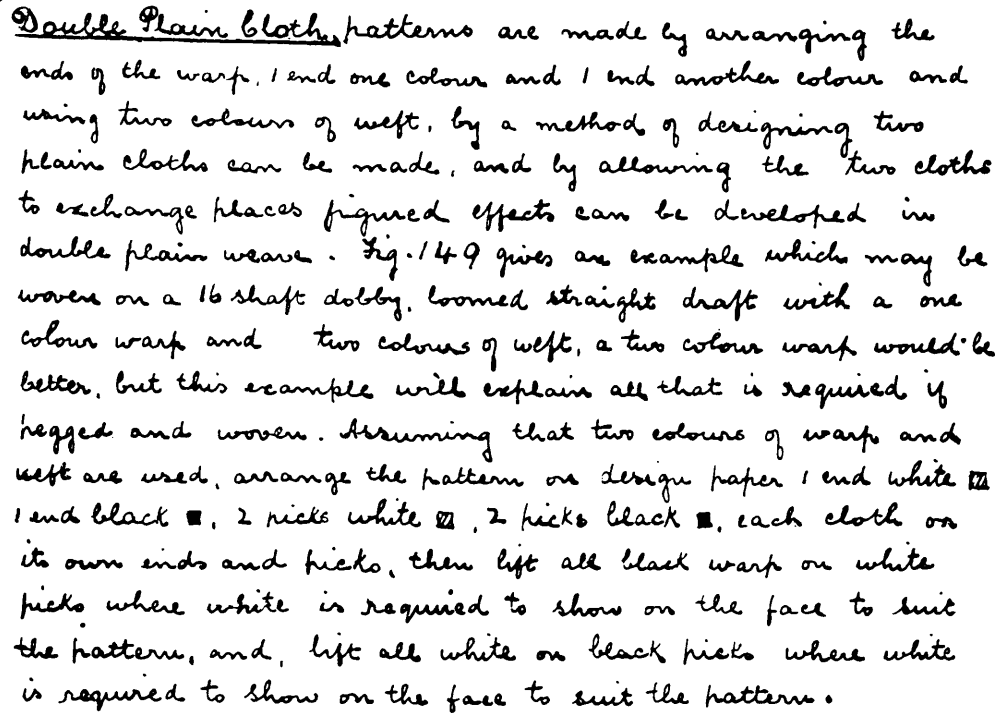 Double Plain Cloth, patterns are made by arranging the
ends of the warp, 1 end one colour and 1 end another colour and
using two colours of weft, by a method of designing two
plain cloths can be made, and by allowing the two cloths
to exchange places figured effects can be developed in
double plain weave. Fig. 149 gives an example which may be
woven on a 16 shaft dobby, loomed straight draft with a one
colour warp and two colours of weft, a two colour warp would be
better, but this example will explain all that is required if
pegged and woven. Assuming that two colours of warp and
weft are used, arrange the pattern on design paper 1 end white ▨
1 end black ■, 2 picks white ▨, 2 picks black ■, each cloth on
its own ends and picks, then lift all black warp on white
picks where white is required to show on the face to suit
the pattern, and, lift all white on black picks where white
is required to show on the face to suit the pattern.